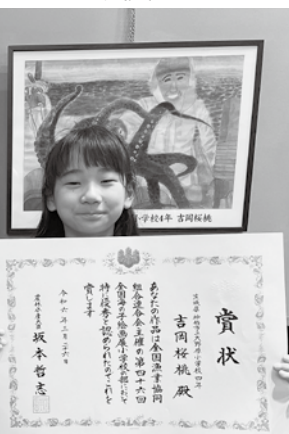 小学校4年 吉岡桜桃
賞状
茨城県神栖市立大野原小学校四年
吉岡桜桃 殿
あなたの作品は全国漁業協同
組合連合会主催の第四十六回
全国海の子絵画展小学校の部において
特に優秀と認められたのでこれを
賞します
令和六年三月二十六日
農林水産大臣 坂本哲志